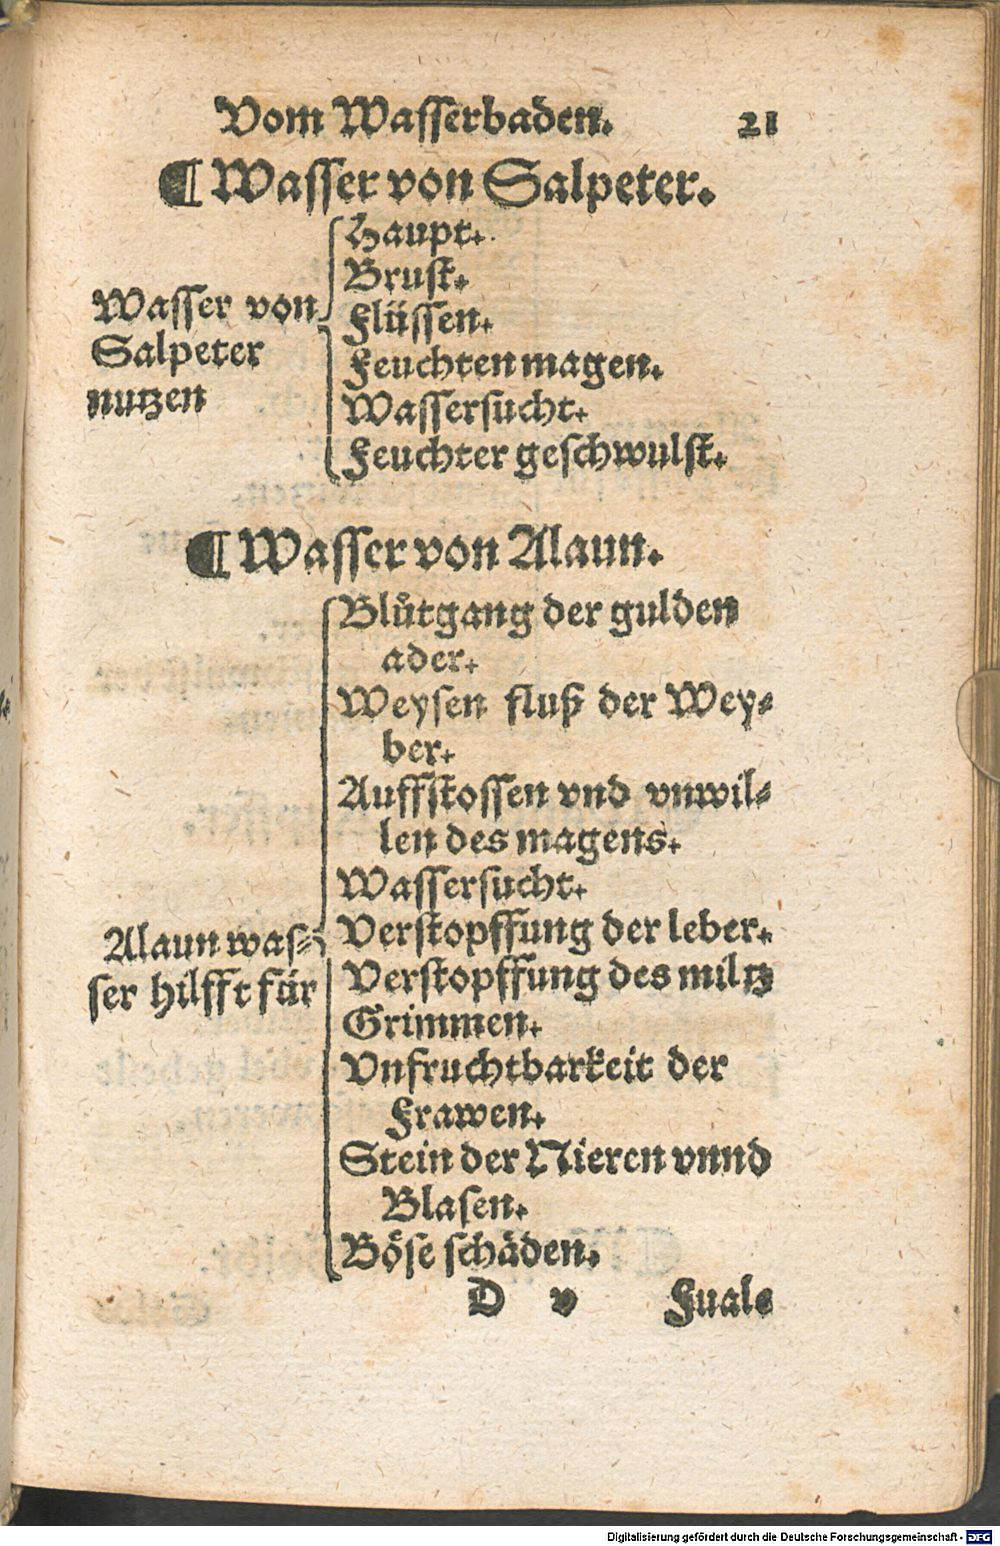 Vom Wasserbaden. 21
¶ Wasser von Salpeter.
Wasser von
Salpeter
nutzen
Haupt.
Brust.
Flüssen.
Feuchten magen.
Wassersucht.
Feuchter geschwulst.
¶ Wasser von Alaun.
Alaun was⸗
ser hilfft für
Blůtgang der gulden
ader.
Weysen fluß der Wey⸗
ber.
Auffstossen vnd vnwil⸗
len des magens.
Wassersucht.
Verstopffung der leber.
Verstopffung des miltz
Grimmen.
Vnfruchtbarkeit der
Frawen.
Stein der Nieren vnnd
Blasen.
Böse schäden.
D v Fual⸗
Digitalisierung gefördert durch die Deutsche Forschungsgemeinschaft - DFG